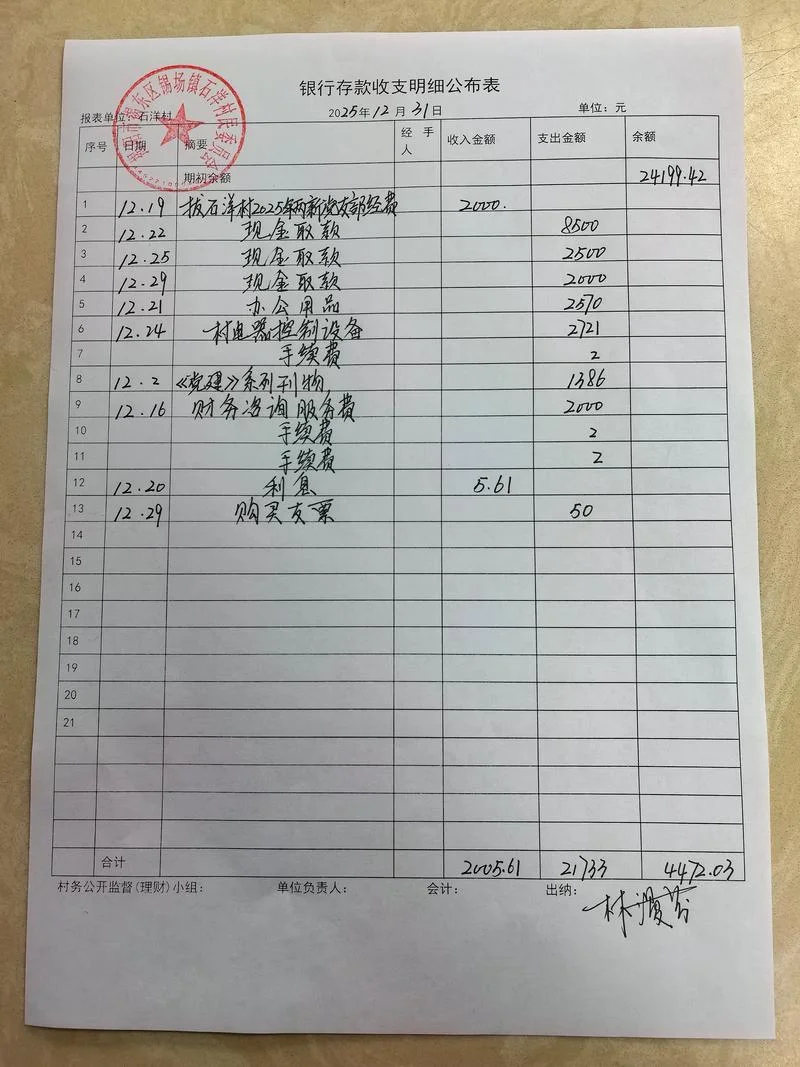 银行存款收支明细公布表
报表单位：石洋村 2025年12月31日 单位：元
序号 日期 摘要 经手人 收入金额 支出金额 余额
期初余额 24199.42
1 12.19 拨石洋村2025年两新党支部经费 2000.
2 12.22 现金取款 8500
3 12.25 现金取款 2500
4 12.29 现金取款 2000
5 12.21 办公用品 2570
6 12.24 村电器控制设备 2721
7 手续费 2
8 12.2 《党建》系列刊物 1386
9 12.16 财务咨询服务费 2000
10 手续费 2
11 手续费 2
12 12.20 利息 5.61
13 12.29 购买支票 50
14
15
16
17
18
19
20
21
合计 2005.61 21733 4472.03
村务公开监督(理财)小组： 单位负责人： 会计： 出纳：